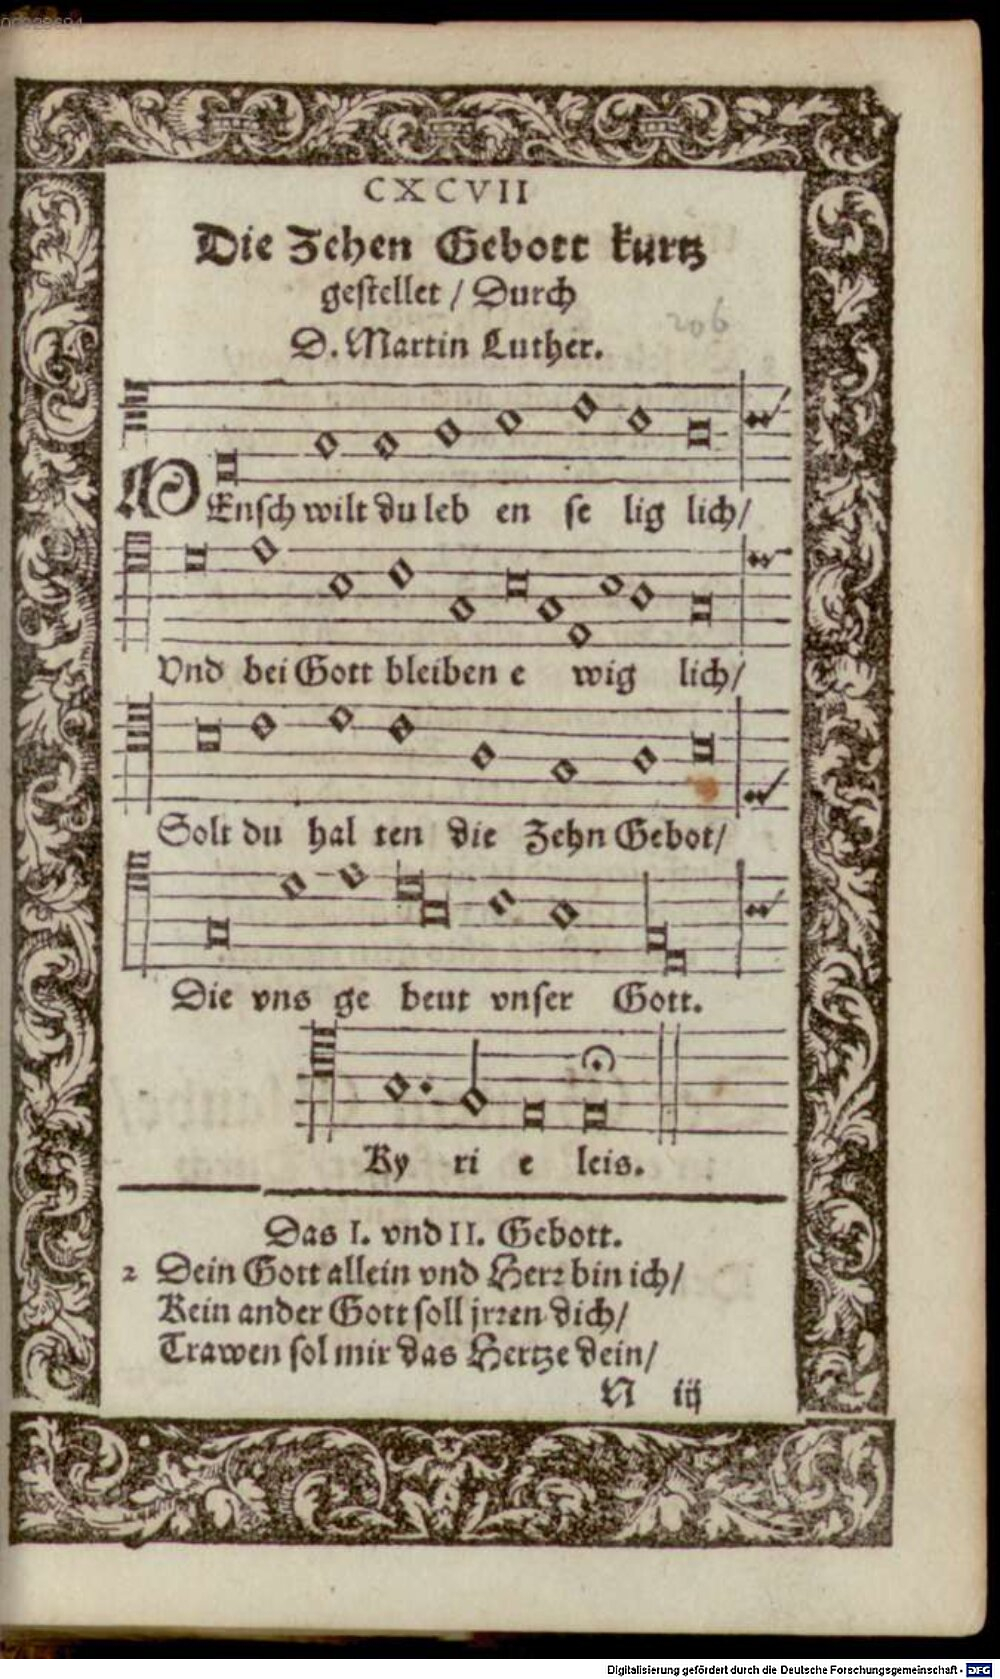 00028694
CXCVII
Die Zehen Gebott kurtz
gestellet / Durch
206
D. Martin Luther.
MEnsch wilt du leb en se lig lich/
Vnd bei Gott bleiben e wig lich/
Solt du hal ten die Zehn Gebot/
Die vns ge beut vnser Gott.
Ky ri e leis.
Das I. vnd II. Gebott.
2 Dein Gott allein vnd Herr bin ich/
Kein ander Gott soll jrren dich/
Trawen sol mir das Hertze dein/
N iij
Digitalisierung gefördert durch die Deutsche Forschungsgemeinschaft - DFG